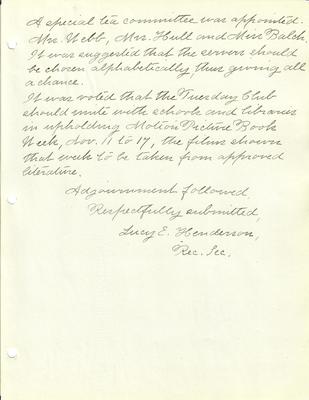 A special tea committee was appointed.
Mrs. Webb, Mrs. Hull and Miss Balch.
It was suggested that the servers should
be chosen alphabetically, thus giving all
a chance.
It was voted that the Tuesday Club
should unite with schools and libraries
in upholding Motion Picture Book
Week, Nov. 11 to 17, the films shown
that week to be taken from approved
literature.
Adjournment followed
Respectfully submitted,
Lucy E. Henderson,
Rec. Sec.